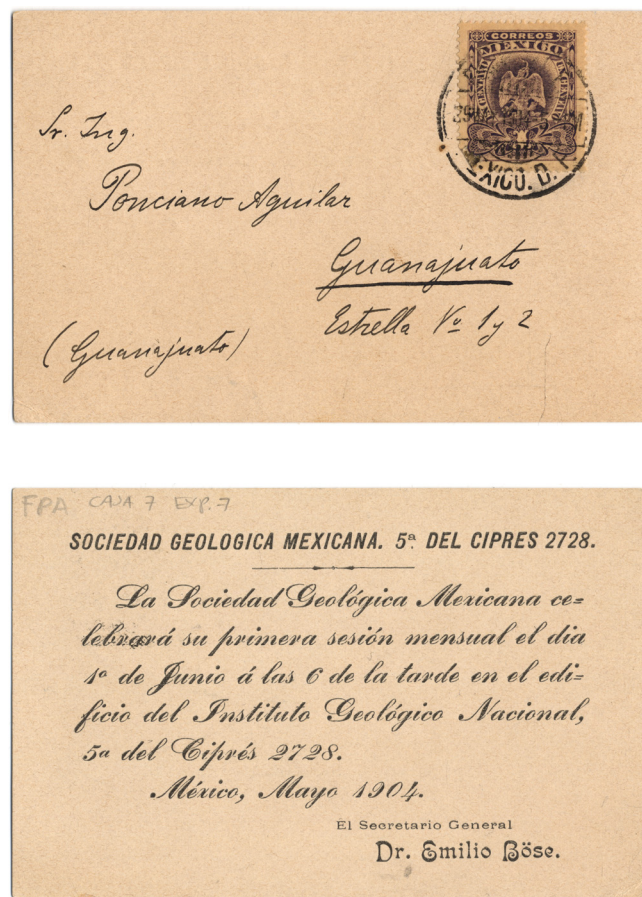 CORREOS
MEXICO
UN CENTAVO
UN CENTAVO
MEXICO. D. F.
Sr. Ing.
Ponciano Aguilar
Guanajuato
Estrella Nº 1 y 2
(Guanajuato)
FPA CAJA 7 EXP. 7
SOCIEDAD GEOLOGICA MEXICANA. 5ª DEL CIPRES 2728.
La Sociedad Geológica Mexicana ce=
lebrará su primera sesión mensual el dia
1º de Junio á las 6 de la tarde en el edi=
ficio del Instituto Geológico Nacional,
5a del Ciprés 2728.
México, Mayo 1904.
El Secretario General
Dr. Emilio Böse.